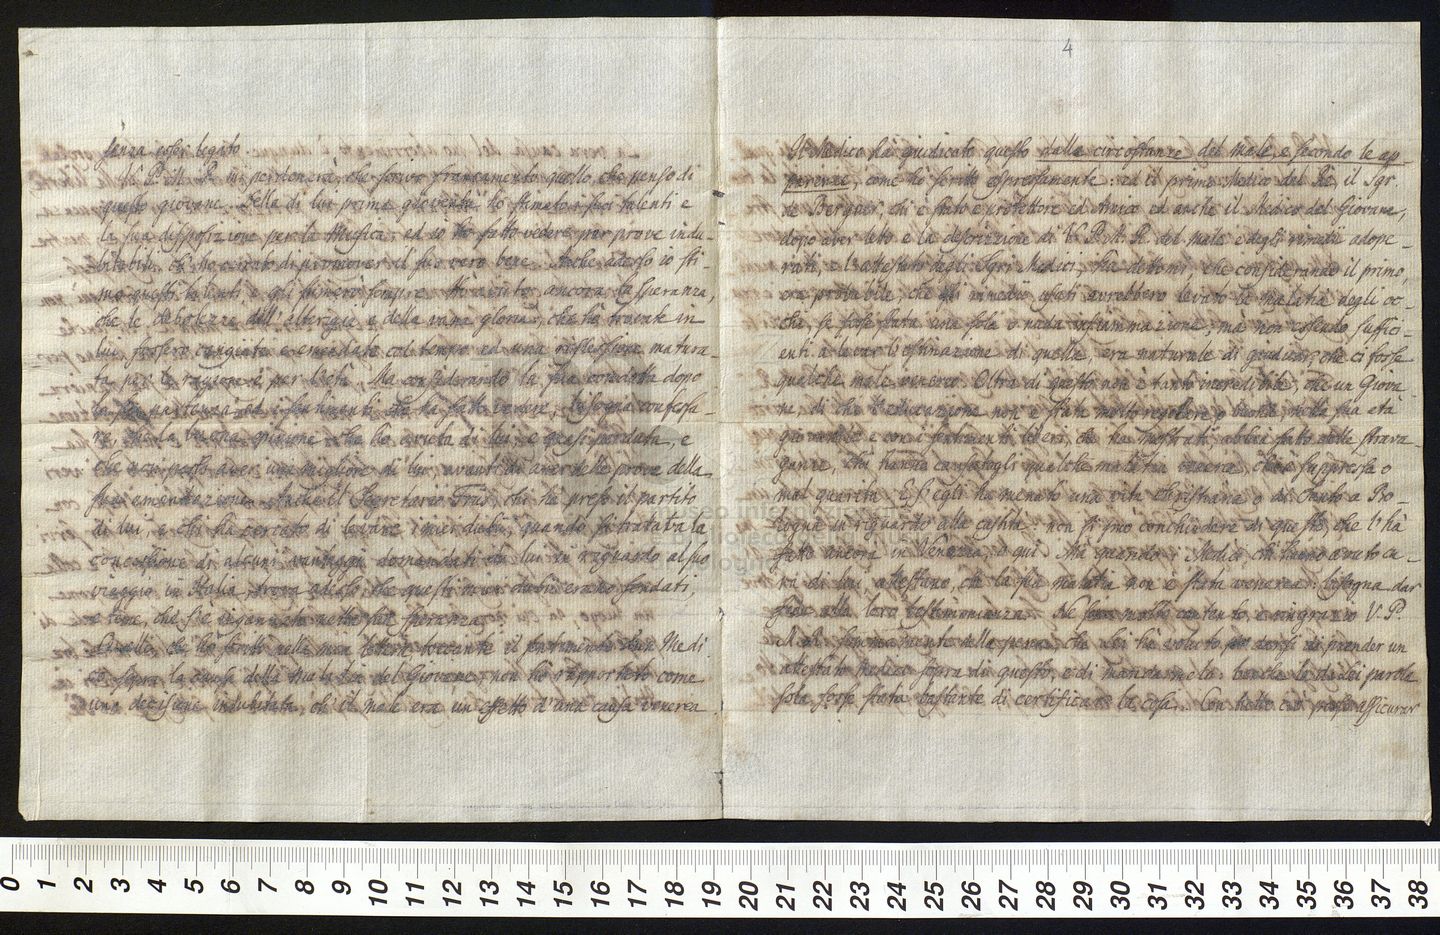 4
senza esser legato.
V. P. M. R. mi perdonerà, che scrivo francamente quello, che penso di
questo giovane. Della di lui prima gioventù ho stimato i suoi talenti e
la sua disposizione per la Musica; ed io ho fatto vedere per prove indu-
bitabili, che ho cercato di promover il suo vero bene. Anche adesso io sti-
mo questi talenti e gli stimerò sempre. Ho avuto ancora la speranza,
che le debolezze dell'alterigia e della vana gloria, che ho trovate in
lui fossero cangiate e emendate col tempo ed una riflessione matura-
ta per la ragione e per l'età. Ma considerando la sua condotta dopo
la sua partenza ed i sentimenti che ha fatto vedere, bisogna confessa-
re, che la buona opinione che ho avuta di lui, è quasi perduta, e
che non posso aver una migliore di lui avanti di aver delle prove della
sua emendazione. Anche il Segretario che ha preso il partito
di lui, e chi ha cercato di levare i miei dubii, quando si trattava la
concessione di alcuni vantaggi domandati da lui in riguardo al suo
viaggio in Italia, trova adesso, che questi miei dubii erano fondati,
e teme, che s'è ingannato nelle sue speranze.
Quello, che ho scritto nella mia lettera toccante il sentimento d'un Medi-
co sopra la causa della Malatia del Giovane, non ho rapportato come
una decisione indubitata, ch'il male era un effetto d'una causa venerea
Il Medico ha giudicato questo dalle circostanze del male, e secondo le ap-
parenze, come ho scritto espressamente: ed il primo Medico del Re, il Sgr.
de Berguer, chi è stato e protettore ed Amico ed anche il Medico del Giovane,
dopo aver letto e la descrizione di V. P. M. R. del male e degli rimedii adope-
rati, e l'attestato degli Sgri Medici, ha dettomi, che considerando il primo,
era probabile, che gli rimedii usati avrebbero levato la malatia negli oc-
chi, se fosse stata una sola e nuda infiammazione; mà non essendo suffici-
enti a levar l'estinazione di quella, era naturale di giudicar, che ci fosse
qualche male venereo. Oltra di questo non è tanto incredibile, che un Giova-
ne di che l'educazione non è stata molto regolare o buona, nella sua età
giovanile e con i sentimenti liberi, che ha mostrati, abbia fatto delle strava-
ganze, chi hanno causatagli qualche malatia venerea, chi è suppressa o
mal guarita. E s'egli ha menato una vita christiana o da Santo a Bo-
logna in riguardo alla castità: non si può conchiudere di questo, che l'hà
fatto ancora in Venezia, o qui. Mà quando i Medici, chi hanno avuto cu-
ra di lui, attestano, che la sua malatia non è stata venerea: bisogna dar
fede alla loro testimonianza. Ne sono molto contento, e ringrazio V. P.
M. R. sommamente della pena, che Lei hà voluto dar si di prender un
attestato Medico sopra di questo, e di mandarmelo: benchè la di Lei parola
sola fosse stata bastante di certificar la cosa. Con tutto ciò posso assicurar
museo internazionale
e biblioteca della musica
bologna